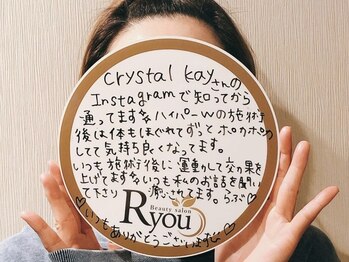 crystal kayさんの
Instagramで知ってから
通ってます☆ハイパーWの施術
後は体もほぐれてずっとポカポカ
してて気持ち良くなってます。
いつも施術後に運動して効果を
上げてます☆いつも私のお話を聞い
て下さり 癒されてます。らぶ♡
Beauty salon
Ryou
♡いつもありがとうございます♡